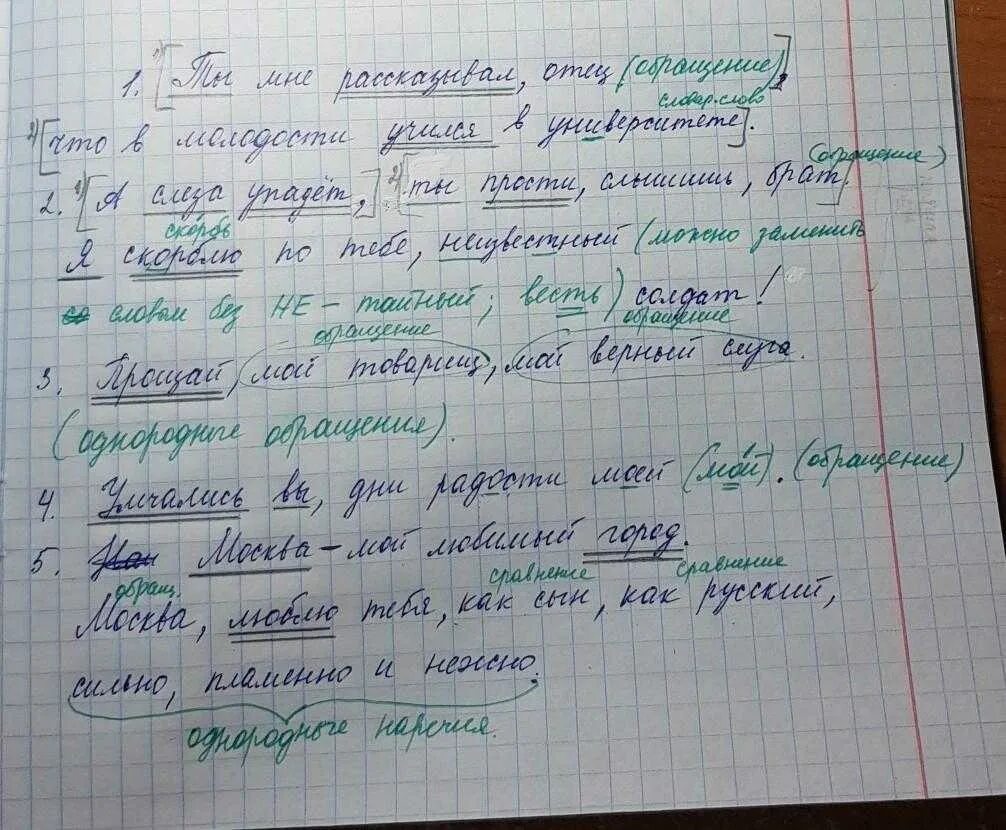 1. 1)[Ты мне рассказывал, отец (обращение)],
словар. слово
2)[что в молодости учился в университете].
(обращение)
2. 1)[А слеза упадёт,] 2)[ты прости, слышишь, брат].
скорбь
Я скорблю по тебе, неизвестный (можно заменить
со словом без НЕ – тайный; весть) солдат!
обращение обращение
3. Прощай, мой товарищ, мой верный слуга.
(однородные обращения).
4. Умчались вы, дни радости моей (мой). (обращение)
5. Москва – мой любимый город.
обращ. сравнение сравнение
Москва, люблю тебя, как сын, как русский,
сильно, пламенно и нежно.
однородные наречия.